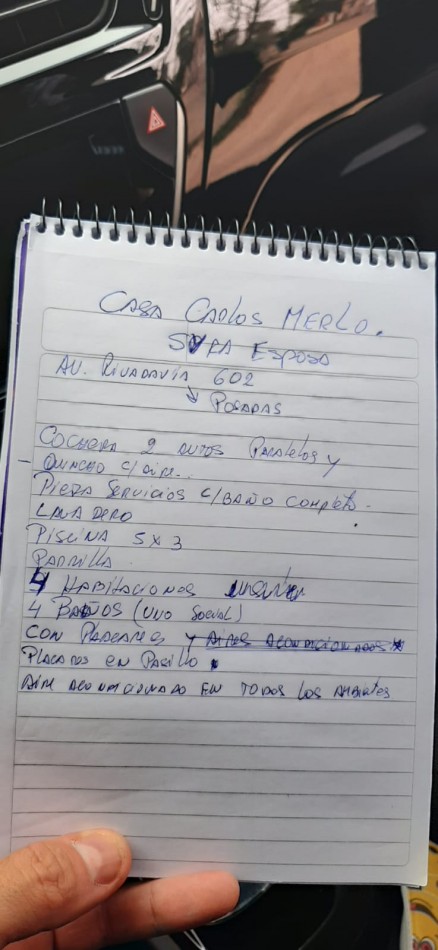 CASA CARLOS MERLO.
SYRA ESPOSA
AV. RIVADAVIA 602
↳ POSADAS
COCHERA 2 AUTOS PARALELOS Y
– QUINCHO C/AIRE..
PIEZA SERVICIOS C/BAÑO COMPLETO.
LAVADERO
PISCINA 5X3
PARRILLA.
4 HABITACIONES
4 BAÑOS (UNO SOCIAL)
CON PLACARES Y AIRES ACONDICIONADOS
PLACARES EN PASILLO
AIRE ACONDICIONADO EN TODOS LOS AMBIENTES